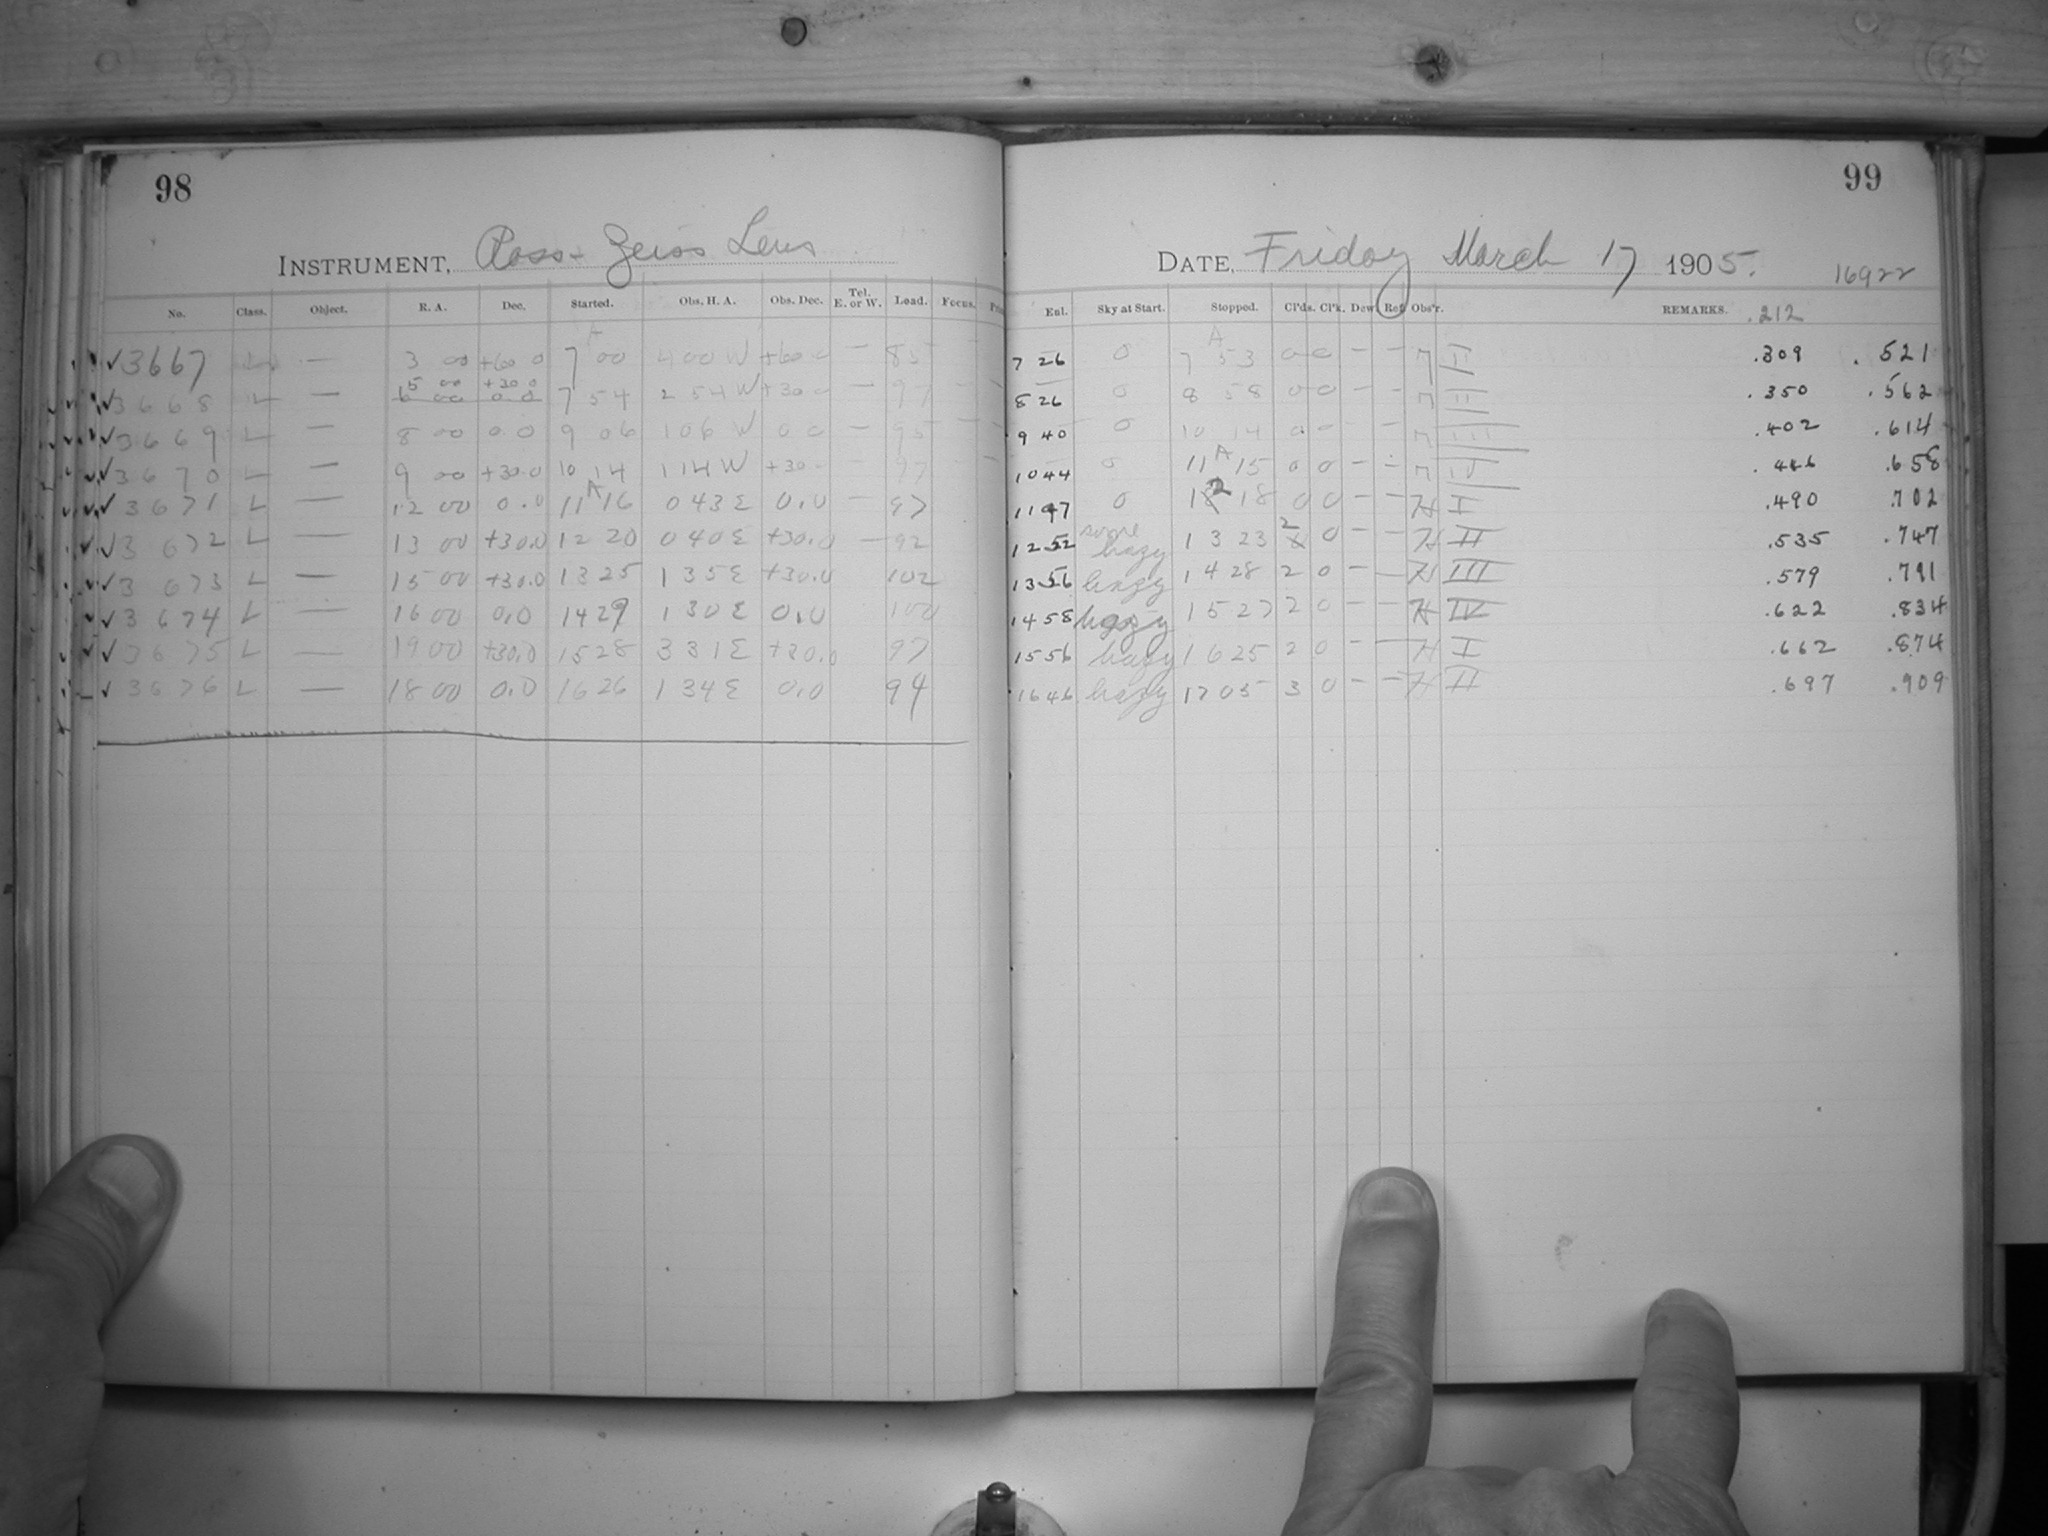 98
99
INSTRUMENT, Ross-Zeiss Lens
DATE, Friday March 17 1905. 16922
No. Class. Object. R. A. Dec. Started. Obs. H. A. Obs. Dec. Tel. E. or W. Load. Focus. Enl. Sky at Start. Stopped. Cl'ds. Cl'k. Dew. Ref. Obs'r. REMARKS. .212
√3667 L — 3 00 +60 0 7 A 00 4 00 W +60 0 — 85 7 26 0 7 A 53 0 0 — — II .309 .521
5 00 +30 0
√3668 L — 6 00 0 0 7 54 2 54 W +30 0 — 97 8 26 0 8 58 0 0 — — II .350 .562
√3669 L — 8 00 0.0 9 06 1 06 W 0 0 — 95 9 40 0 10 14 0 — — III .402 .614
√3670 L — 9 00 +30.0 10 14 1 14 W +30 — 97 10 44 0 11 A 15 0 0 — — IV .446 .658
√3671 L — 12 00 0.0 11 A 16 0 43 E 0.0 — 97 11 47 0 12 18 0 0 — — H I .490 .702
√3672 L — 13 00 +30.0 12 20 0 40 E +30.0 — 92 12 52 some hazy 13 23 2 0 — — H II .535 .747
√3673 L — 15 00 +30.0 13 25 1 35 E +30.0 102 13 56 hazy 14 28 2 0 — — H III .579 .791
√3674 L — 16 00 0.0 14 29 1 30 E 0.0 100 14 58 hazy 15 27 2 0 — — H IV .622 .834
√3675 L — 19 00 +30.0 15 28 3 31 E +30.0 97 15 56 hazy 16 25 2 0 — — H I .662 .874
√3676 L — 18 00 0.0 16 26 1 34 E 0.0 94 16 46 hazy 17 05 3 0 — — H II .697 .909